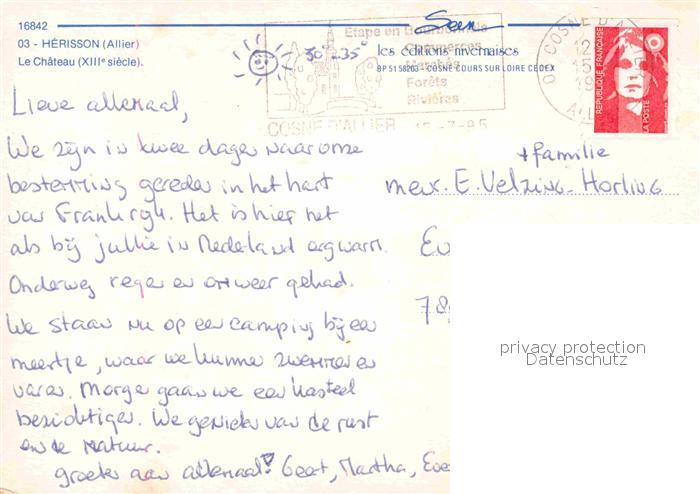 16842
03 - HÉRISSON (Allier)
Le Château (XIIIe siècle).
Seen
30 à 35°
les éditions nivernaises
BP 51 58203 - COSNE COURS SUR LOIRE CEDEX
Etape en Bourbonnais
Commerces
Marchés
Forêts
Rivières
COSNE D'ALLIER
COSNE D'A
RÉPUBLIQUE FRANÇAISE
LA POSTE
Lieve allemaal,
We zijn in twee dagen naar onze
bestemming gereden in het hart
van Frankrijk. Het is hier net
als bij jullie in Nederland erg warm.
Onderweg regen en onweer gehad.
We staan nu op een camping bij een
meertje, waar we kunnen zwemmen en
varen. Morgen gaan we een kasteel
bezichtigen. We genieten van de rust
en de natuur.
groeten aan allemaal! Geert, Martha, Eve
+ familie
mevr. E. Velzing-Horling
78
privacy protection
Datenschutz